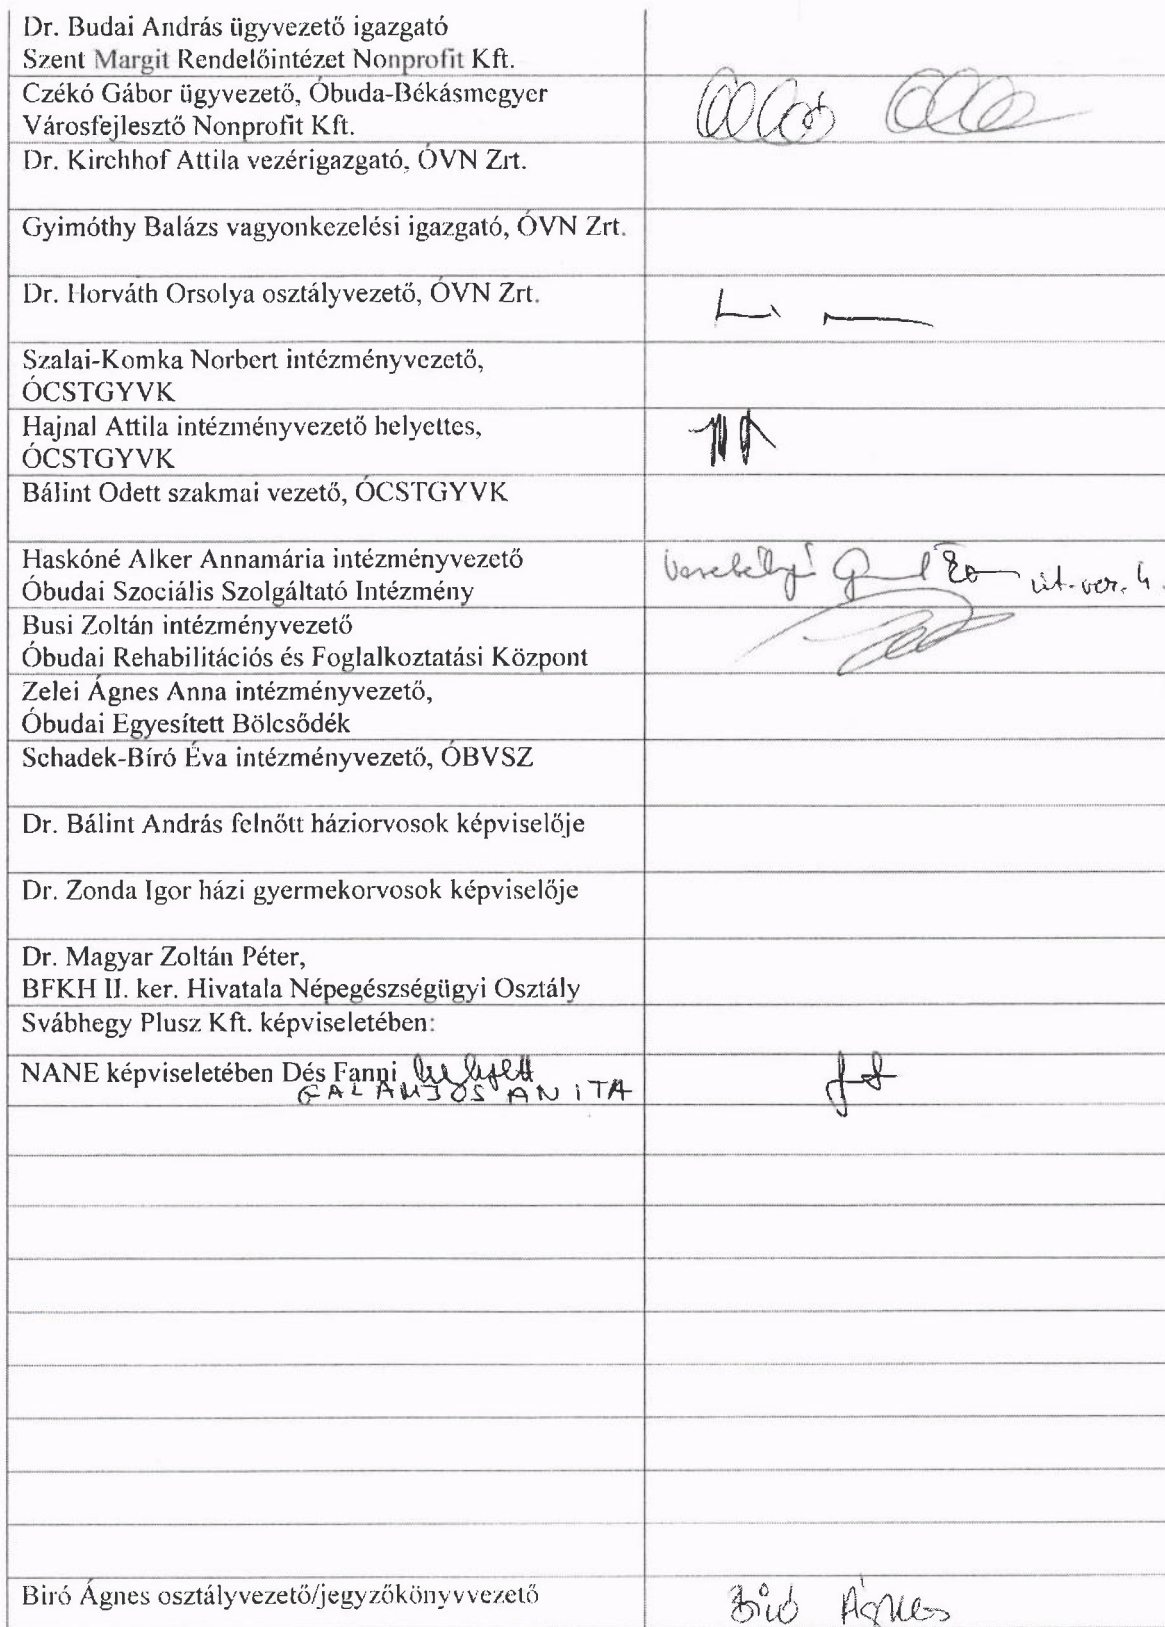 Dr. Budai András ügyvezető igazgató
Szent Margit Rendelőintézet Nonprofit Kft.
Czékó Gábor ügyvezető, Óbuda-Békásmegyer
Városfejlesztő Nonprofit Kft.
Dr. Kirchhof Attila vezérigazgató, ÓVN Zrt.
Gyimóthy Balázs vagyonkezelési igazgató, ÓVN Zrt.
Dr. Horváth Orsolya osztályvezető, ÓVN Zrt.
Szalai-Komka Norbert intézményvezető,
ÓCSTGYVK
Hajnal Attila intézményvezető helyettes,
ÓCSTGYVK
Bálint Odett szakmai vezető, ÓCSTGYVK
Haskóné Alker Annamária intézményvezető
Óbudai Szociális Szolgáltató Intézmény
Busi Zoltán intézményvezető
Óbudai Rehabilitációs és Foglalkoztatási Központ
Zelei Ágnes Anna intézményvezető,
Óbudai Egyesített Bölcsődék
Schadek-Bíró Éva intézményvezető, ÓBVSZ
Dr. Bálint András felnőtt háziorvosok képviselője
Dr. Zonda Igor házi gyermekorvosok képviselője
Dr. Magyar Zoltán Péter,
BFKH II. ker. Hivatala Népegészségügyi Osztály
Svábhegy Plusz Kft. képviseletében:
NANE képviseletében Dés Fanni helyett
GALAMBOS ANITA
Biró Ágnes osztályvezető/jegyzőkönyvvezető
Biró Ágnes